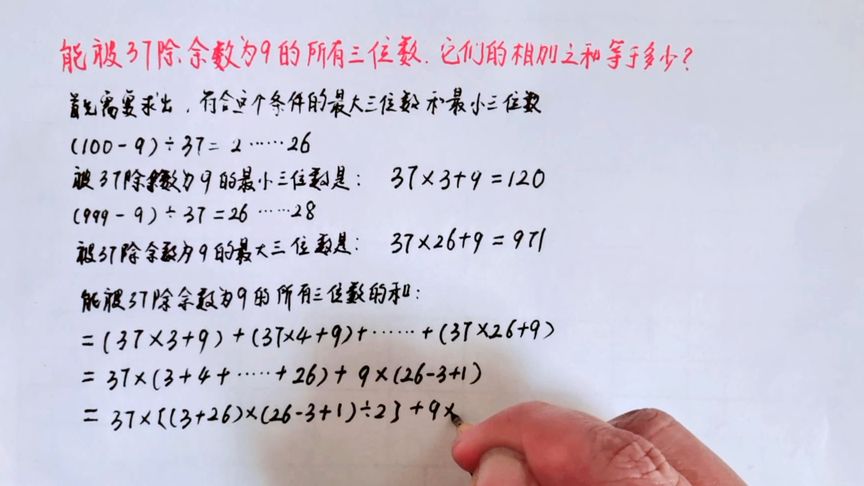 能被37除余数为9的所有三位数.它们的相加之和等于多少?
首先需要求出,符合这个条件的最大三位数和最小三位数
(100-9)÷37=2……26
被37除余数为9的最小三位数是: 37×3+9=120
(999-9)÷37=26……28
被37除余数为9的最大三位数是: 37×26+9=971
能被37除余数为9的所有三位数的和:
=(37×3+9)+(37×4+9)+……+(37×26+9)
=37×(3+4+……+26)+9×(26-3+1)
=37×[(3+26)×(26-3+1)÷2]+9×